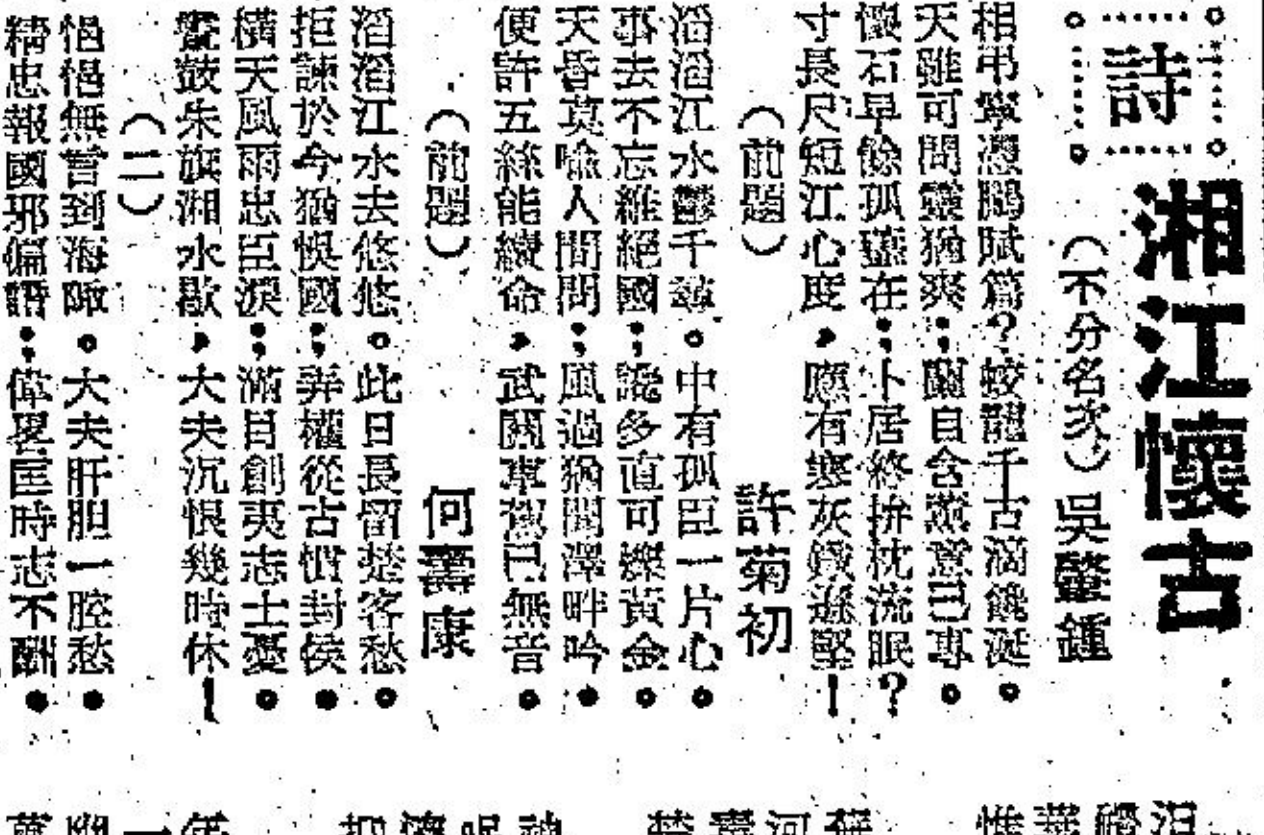 詩
湘江懷古
(不分名次) 吳鏧鍾
相弔寧憑鵩賦篇?蛟龍千古滴饞涎。
天雖可問靈猶爽;蘭自含薰意已專。
懷石早餘孤藎在;卜居終拚枕流眠?
寸長尺短江心度,應有寒灰鐵遜堅!
(前題) 許菊初
滔滔江水鬱千尋。中有孤臣一片心。
事去不忘維絕國;讒多直可爍黃金。
天昏莫喻人間問;風過猶聞澤畔吟。
便許五絲能續命,武關車駕已無音。
(前題) 何壽康
滔滔江水去悠悠。此日長留楚客愁。
拒諫於今猶悞國;弄權從古慣封侯。
橫天風雨忠臣淚;滿目創夷志士憂。
鼉鼓朱旗湘水歇,大夫沉恨幾時休!
(二)
悒悒無言到海陬。大夫肝胆一腔愁。
精忠報國邪偏譖;偉畧匡時志不酬。